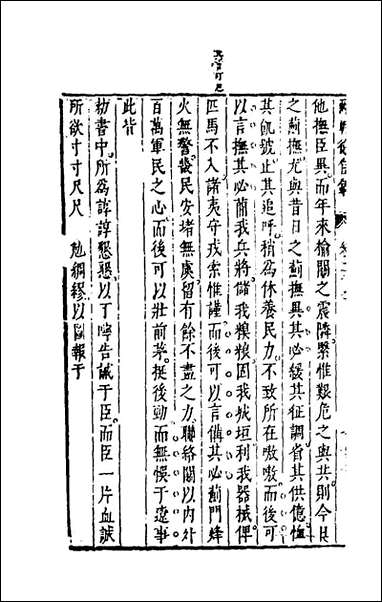 他撫臣異而年來榆關之震隣緊惟艱危之與共則今日
之薊撫尤與昔日之薊撫異其必緩其征調省其供億恤
其飢號止其追呼稍爲休養民力不致所在嗷嗷而後可
以言撫其必簡我兵將儲我糗糧固我城垣利我器械俾
匹馬不入諸夷守戎索惟謹而後可以言備其必薊門烽
火無警蟄民安堵無虞留有餘不盡之力聯絡關以內外
百萬軍民之心而後可以壯前茅挺後勁而無悞于遼事
此皆
勑書中所爲諄諄懇懇以丁寧告誡于臣而臣一片血誠
所欲寸寸尺尺 勉綢繆以圖報于